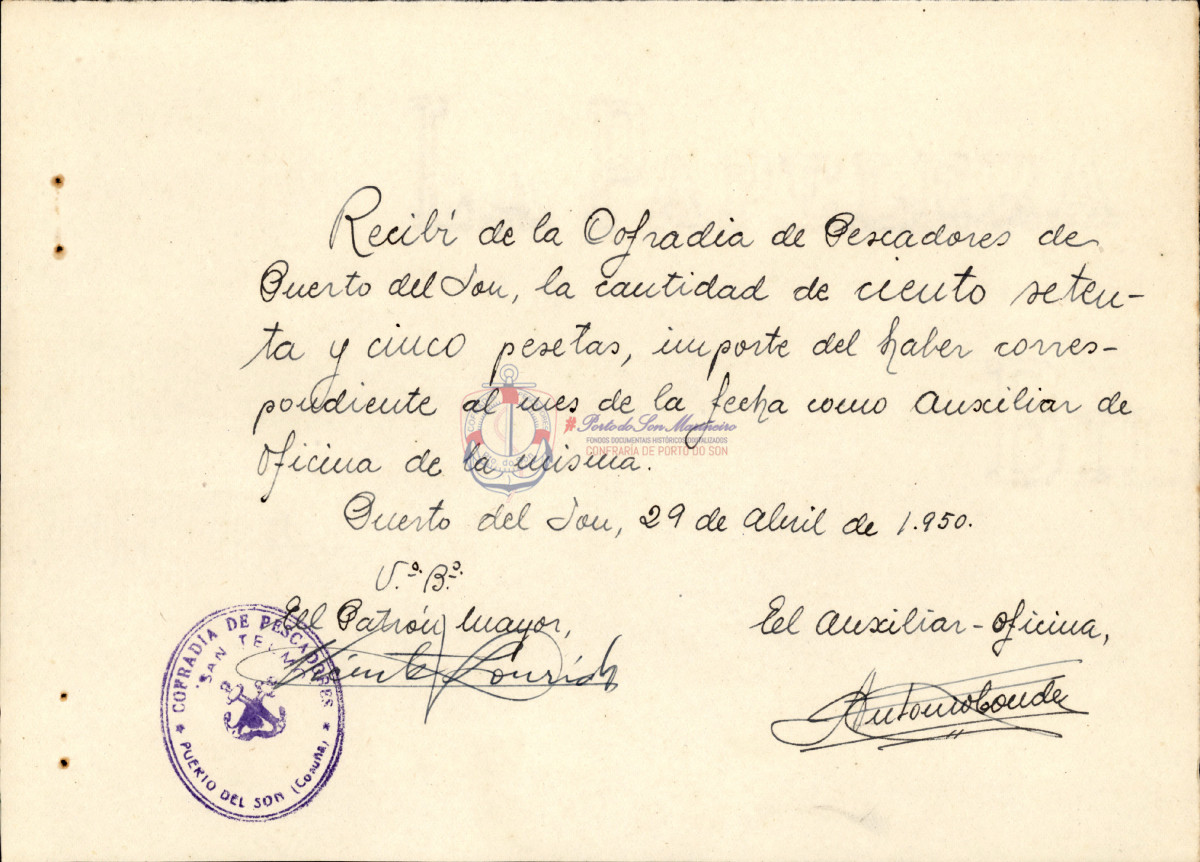 Recibí de la Cofradia de Pescadores de
Puerto del Son, la cantidad de ciento seten-
ta y cinco pesetas, importe del haber corres-
pondiente al mes de la fecha como Auxiliar de
Oficina de la misma.
Puerto del Son, 29 de Abril de 1.950.
V.º B.º
El Patrón Mayor,
El Auxiliar-Oficina,
Vicente
Antonio Conde
COFRADIA DE PESCADORES
"SAN TELMO"
* PUERTO DEL SON (Coruña) *
#PortodoSon Mariñeiro
FONDOS DOCUMENTAIS HISTÓRICOS DIXITALIZADOS
CONFRARÍA DE PORTO DO SON